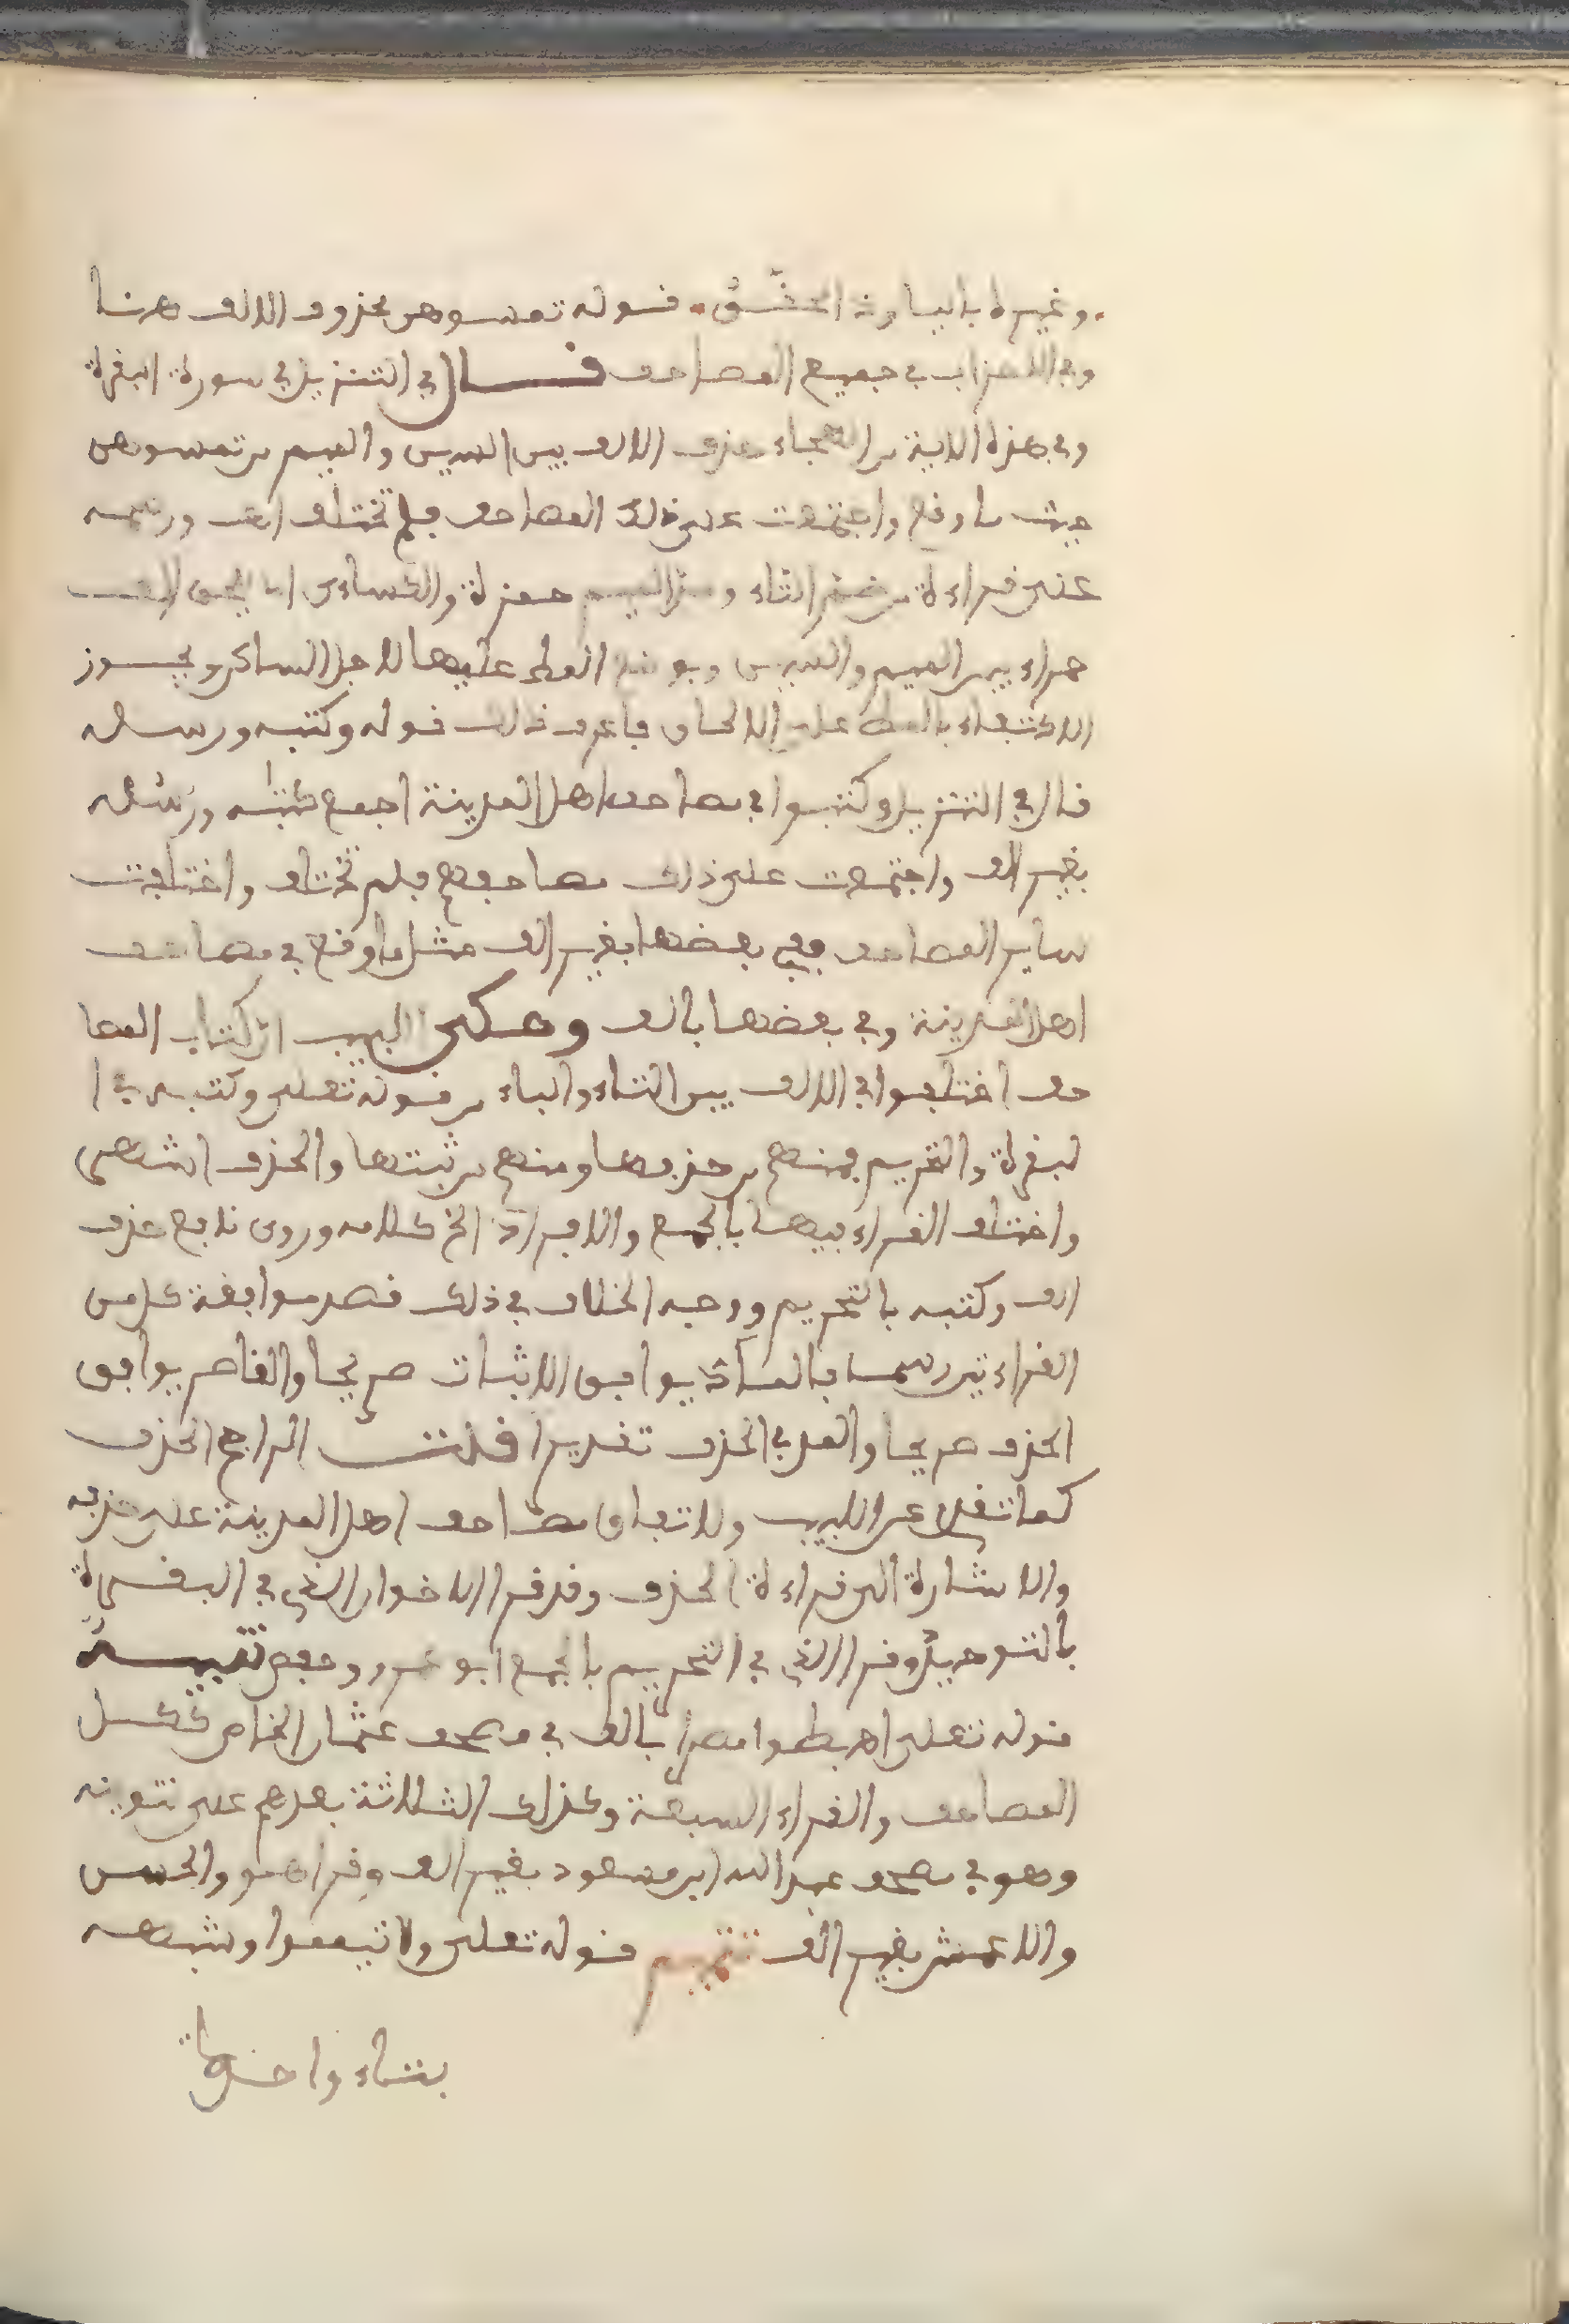 وغيره بالياء وذ المحقق. قوله تمسوهن محذوف الالف هنا
وفي الاحزاب في جميع المصاحف قال في التنزيل في سورة البقرة
وفي هذه الاية من الهجاء حذف الالف بين السين والميم من تمسوهن
حيث ما وقع واجتمعت على ذلك المصاحف فلم تختلف ورسمه
على قراءة من ضم التاء ومد الميم حمزة والكساءي الحق الف
حمراء بين الميم والسين ويوضع المط عليها لاجل الساكن ويجوز
الاكتفاء بالمط على الالحاق فاعرف ذلك قوله وكتبه ورسله
قال في التنزيل وكتبوا في مصاحف اهل المدينة اجمع كتبه ورسله
بغير الف واجتمعت على ذلك مصاحفهم فلم تختلف واختلفت
ساير المصاحف ففي بعضها بغير الف مثل ما وقع في مصاحف
اهل المدينة وفي بعضها بالف وحكى اللبيب ان كتاب المصا
حف اختلفوا في الالف بين التاء والباء من قوله تعلى وكتبه في ا
لبقرة والتحريم فمنهم من حذفها ومنهم من ثبتها والحذف اشهر
واختلف القراء فيها بالجمع والافراد الخ كلامه وروى نافع حذف
الف وكتبه بالتحريم ووجه الخلاف في ذلك قصد موافقة كل من
القراءتين رسما فالماد يوافق الاثبات صريحا والقاصر يوافق
الحذف صريحا والمد في الحذف تقديرا قلت الراجح الحذف
كما تقدم عن اللبيب ولاتفاق مصاحف اهل المدينة على حذفه
والاشارة الى قراءة الحذف وقد قرا الاخوان الذي في البقرة
بالتوحيد وقرا الذي في التحريم بالجمع ابو عمرو وحفص تنبيه
قوله تعلى اهبطوا مصرا بالف في مصحف عثمان الخاص ككل
المصاحف والقراء السبعة وكذلك الثلاثة بعدهم على تنوينه
وهو في مصحف عبد الله ابن مسعود بغير الف وقرا هو والحسن
والاعمش بغير الف تتميم قوله تعلى ولا تيمموا وشبهه
بتاء واحدة